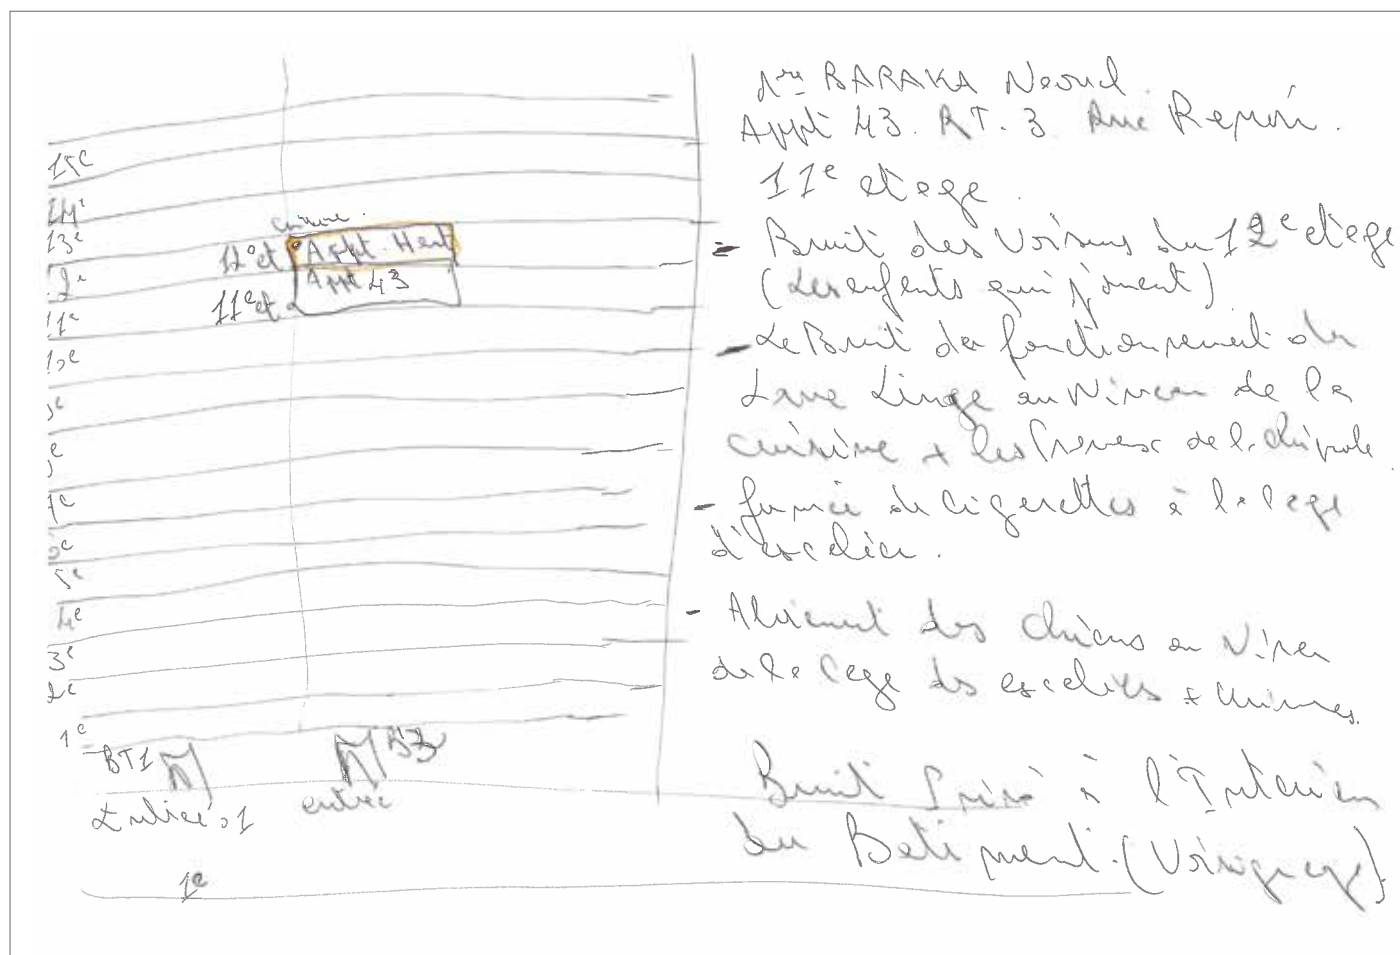 15e
14e
13e
2e
11e
10e
7e
5e
4e
3e
2e
1e
cuisine.
12e et Appt. Haut
11e et Appt 43
BT1
entrée
1e
BARAKA
Appt 43. BT. 3 Rue
11e etage
- Bruit des Voisins du 12e etage
(Les enfants qui jouent)
- Le Bruit de fonctionnement du
Lave Linge au Niveau de la
cuisine + les
- fumée de cigarettes à la cage
d'escalier.
- Aboiement des chiens au Niveau
de la cage des escaliers +
Bruit à l'Interieur
du Batiment. (Voisinage)